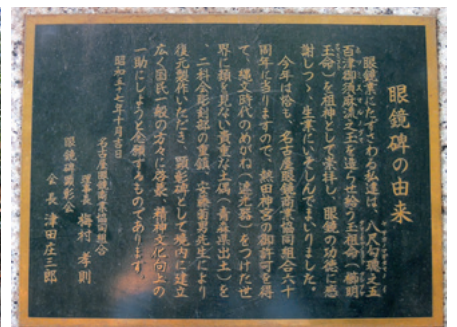 眼鏡碑の由来
眼鏡業にたずさわる私達は、八尺勾璁之五
百津御須麻流之玉を造らせ給う玉祖命(櫛明
玉命)を祖神として崇拝し、眼鏡の功徳に感
謝しつゝ、生業にいそしんでまいりました。
今年は恰も、名古屋眼鏡商業協同組合六十
周年に当りますので、熱田神宮の御許可を得
て、縄文時代のめがね(遮光器)をつけた世
界に類を見ない貴重な土偶(青森県出土)を
、二科会彫刻部の重鎮、安藤菊男先生により
復元製作いただき、顕彰碑として境内に建立
広く国民一般の方々に啓表、精神文化向上の
一助にしようと念願するものであります。
昭和五十七年十月吉日
名古屋眼鏡商業協同組合
理事長 梅村孝則
眼鏡碑顕彰会
会長 津田庄三郎